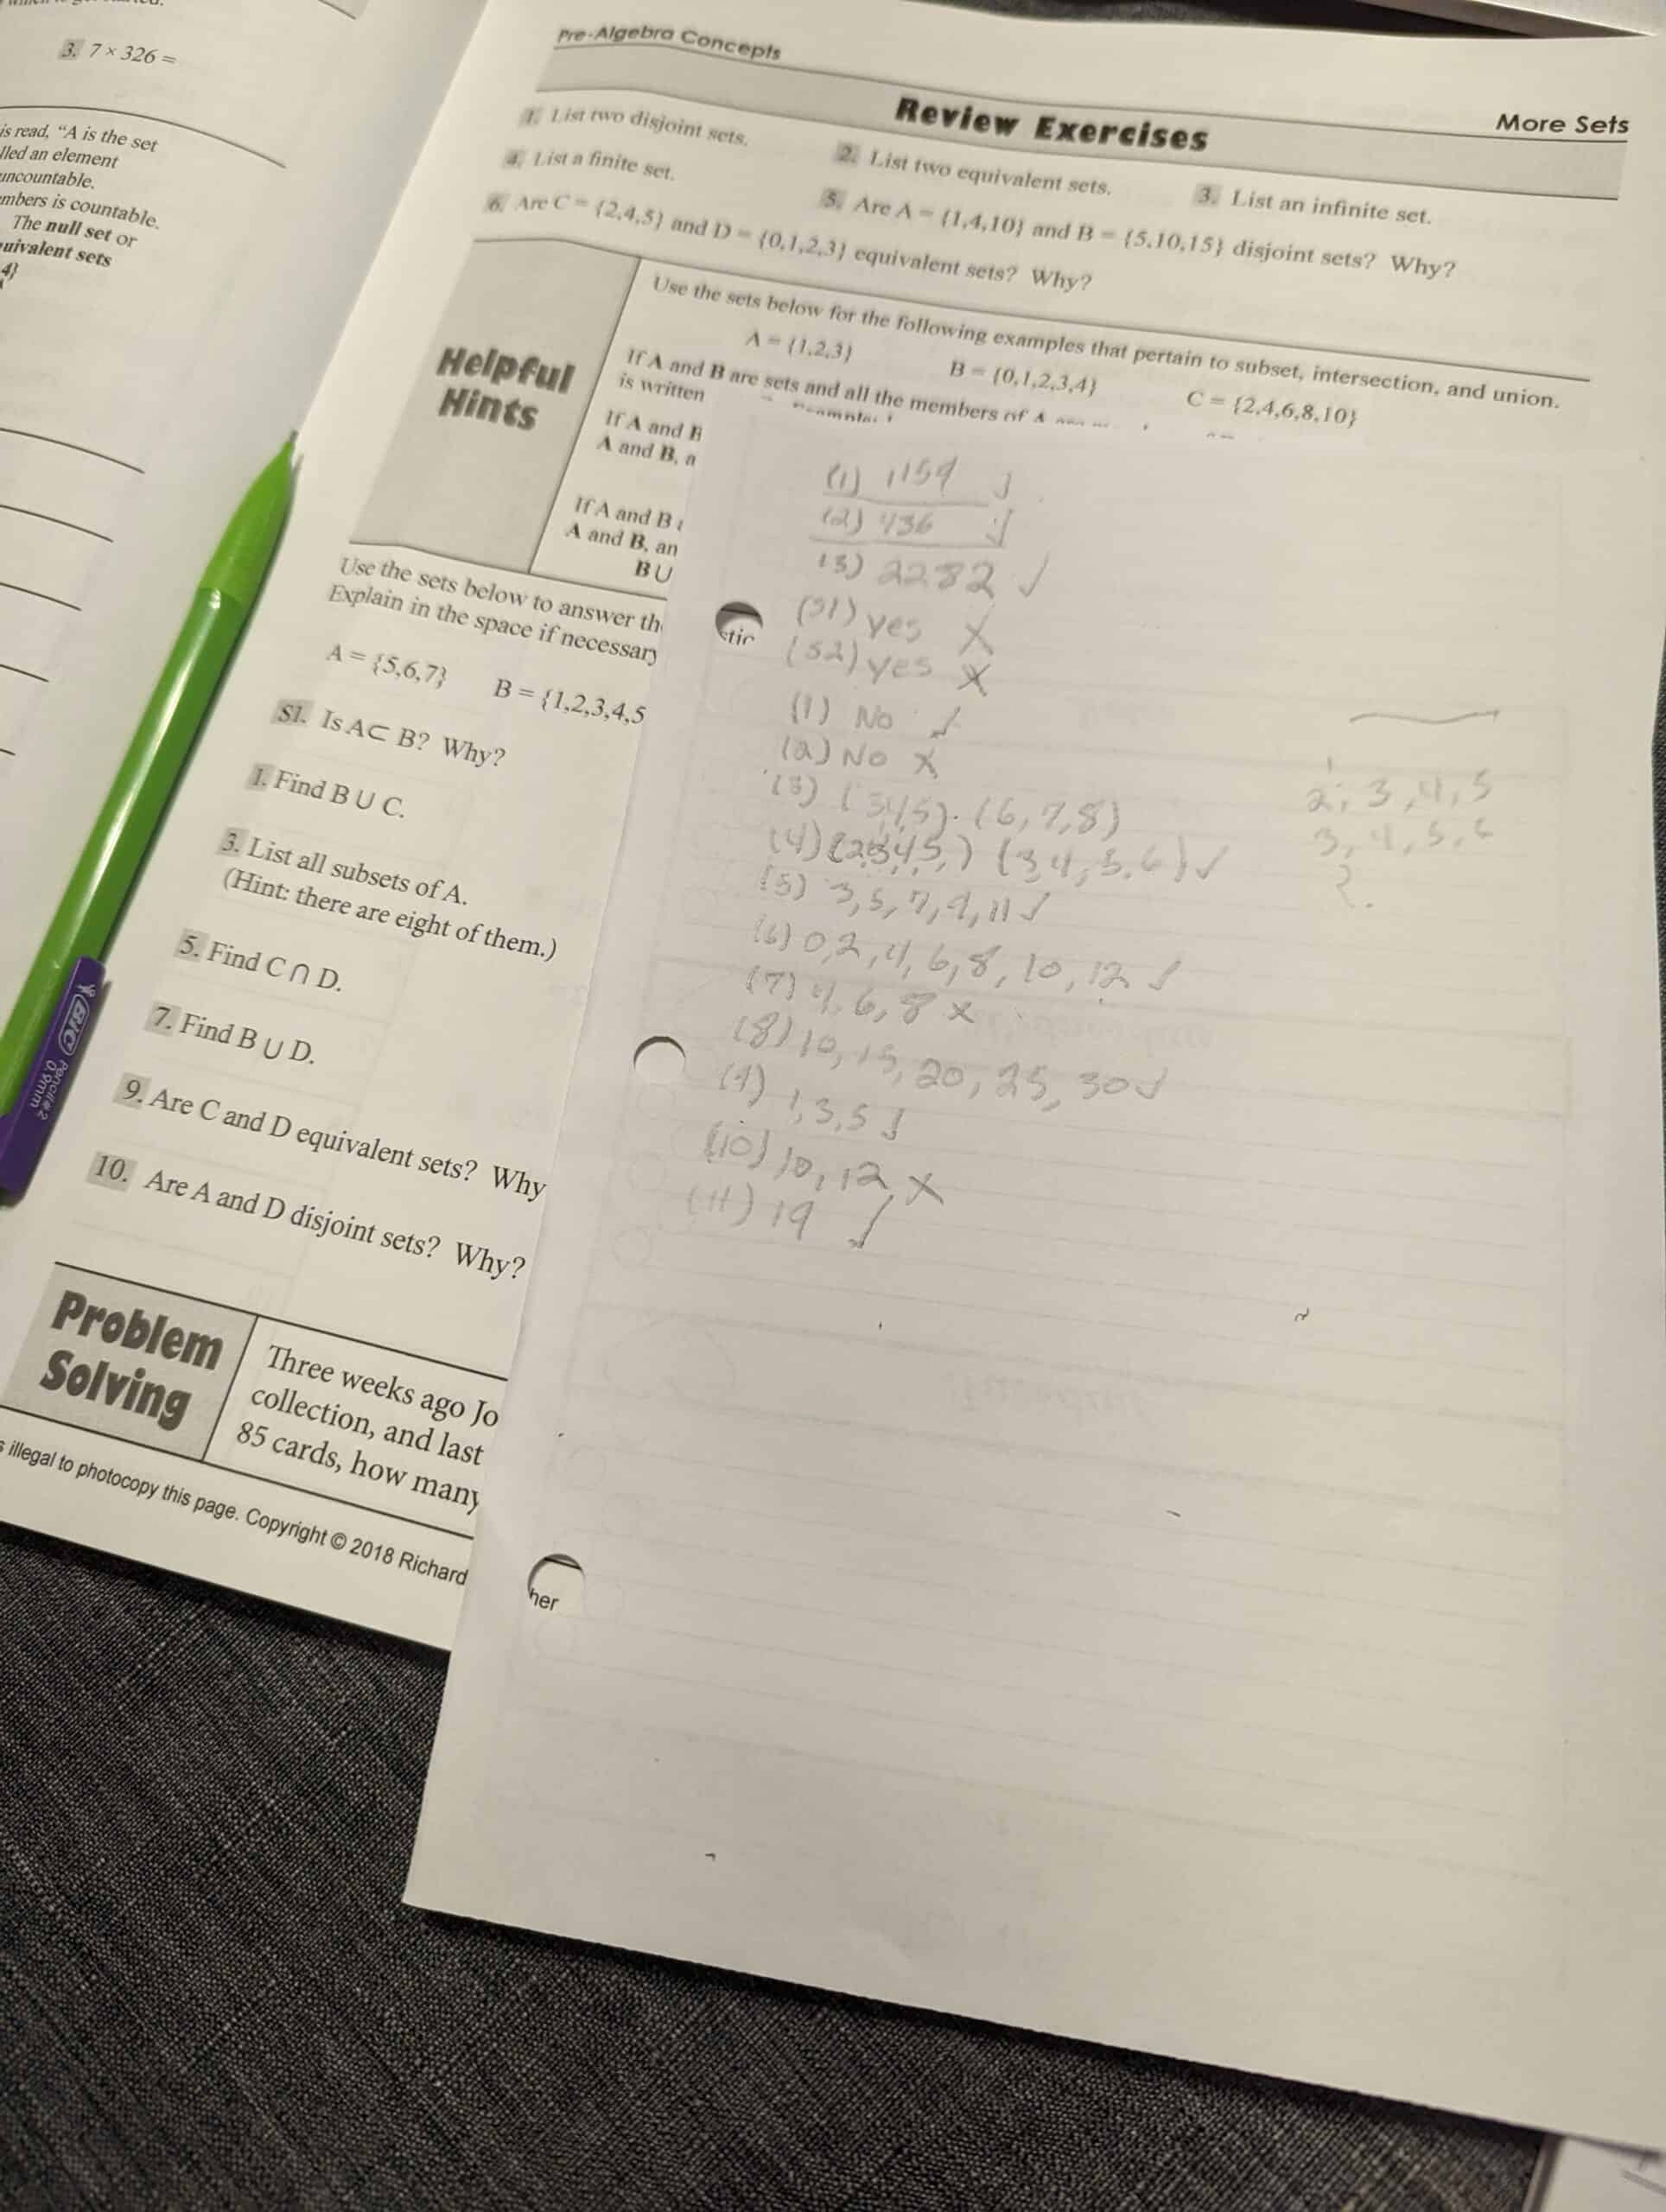 3. 7 × 326 =
is read, "A is the set
lled an element
uncountable.
mbers is countable.
The null set or
uivalent sets
4}
Pre-Algebra Concepts
Review Exercises
More Sets
1. List two disjoint sets.
2. List two equivalent sets.
3. List an infinite set.
4. List a finite set.
5. Are A = {1,4,10} and B = {5,10,15} disjoint sets? Why?
6. Are C = {2,4,5} and D = {0,1,2,3} equivalent sets? Why?
Helpful
Hints
Use the sets below for the following examples that pertain to subset, intersection, and union.
A = {1,2,3}
B = {0,1,2,3,4}
C = {2,4,6,8,10}
If A and B are sets and all the members of A
is written
If A and B
A and B, a
If A and B
A and B, an
B ∪
Use the sets below to answer th
Explain in the space if necessary
A = {5,6,7}
B = {1,2,3,4,5
S1. Is A ⊂ B? Why?
1. Find B ∪ C.
3. List all subsets of A.
(Hint: there are eight of them.)
5. Find C ∩ D.
7. Find B ∪ D.
9. Are C and D equivalent sets? Why
10. Are A and D disjoint sets? Why?
Problem
Solving
Three weeks ago Jo
collection, and last
85 cards, how many
s illegal to photocopy this page. Copyright © 2018 Richard
BIC
Pencil #2
0.9mm
tic
her
(1) 1159 ✓
(2) 436 ✓
(3) 2282 ✓
(S1) yes X
(S2) yes X
(1) No ✓
(2) No X
(3) (3,4,5). (6,7,8)
(4) (2,3,4,5,) (3,4,5,6) ✓
(5) 3,5,7,9,11 ✓
(6) 0,2,4,6,8,10,12 ✓
(7) 4,6,8 X
(8) 10,15,20,25,30 ✓
(9) 1,3,5 ✓
(10) 10,12 X
(11) 19 ✓
2, 3, 4, 5
3, 4, 5, 6